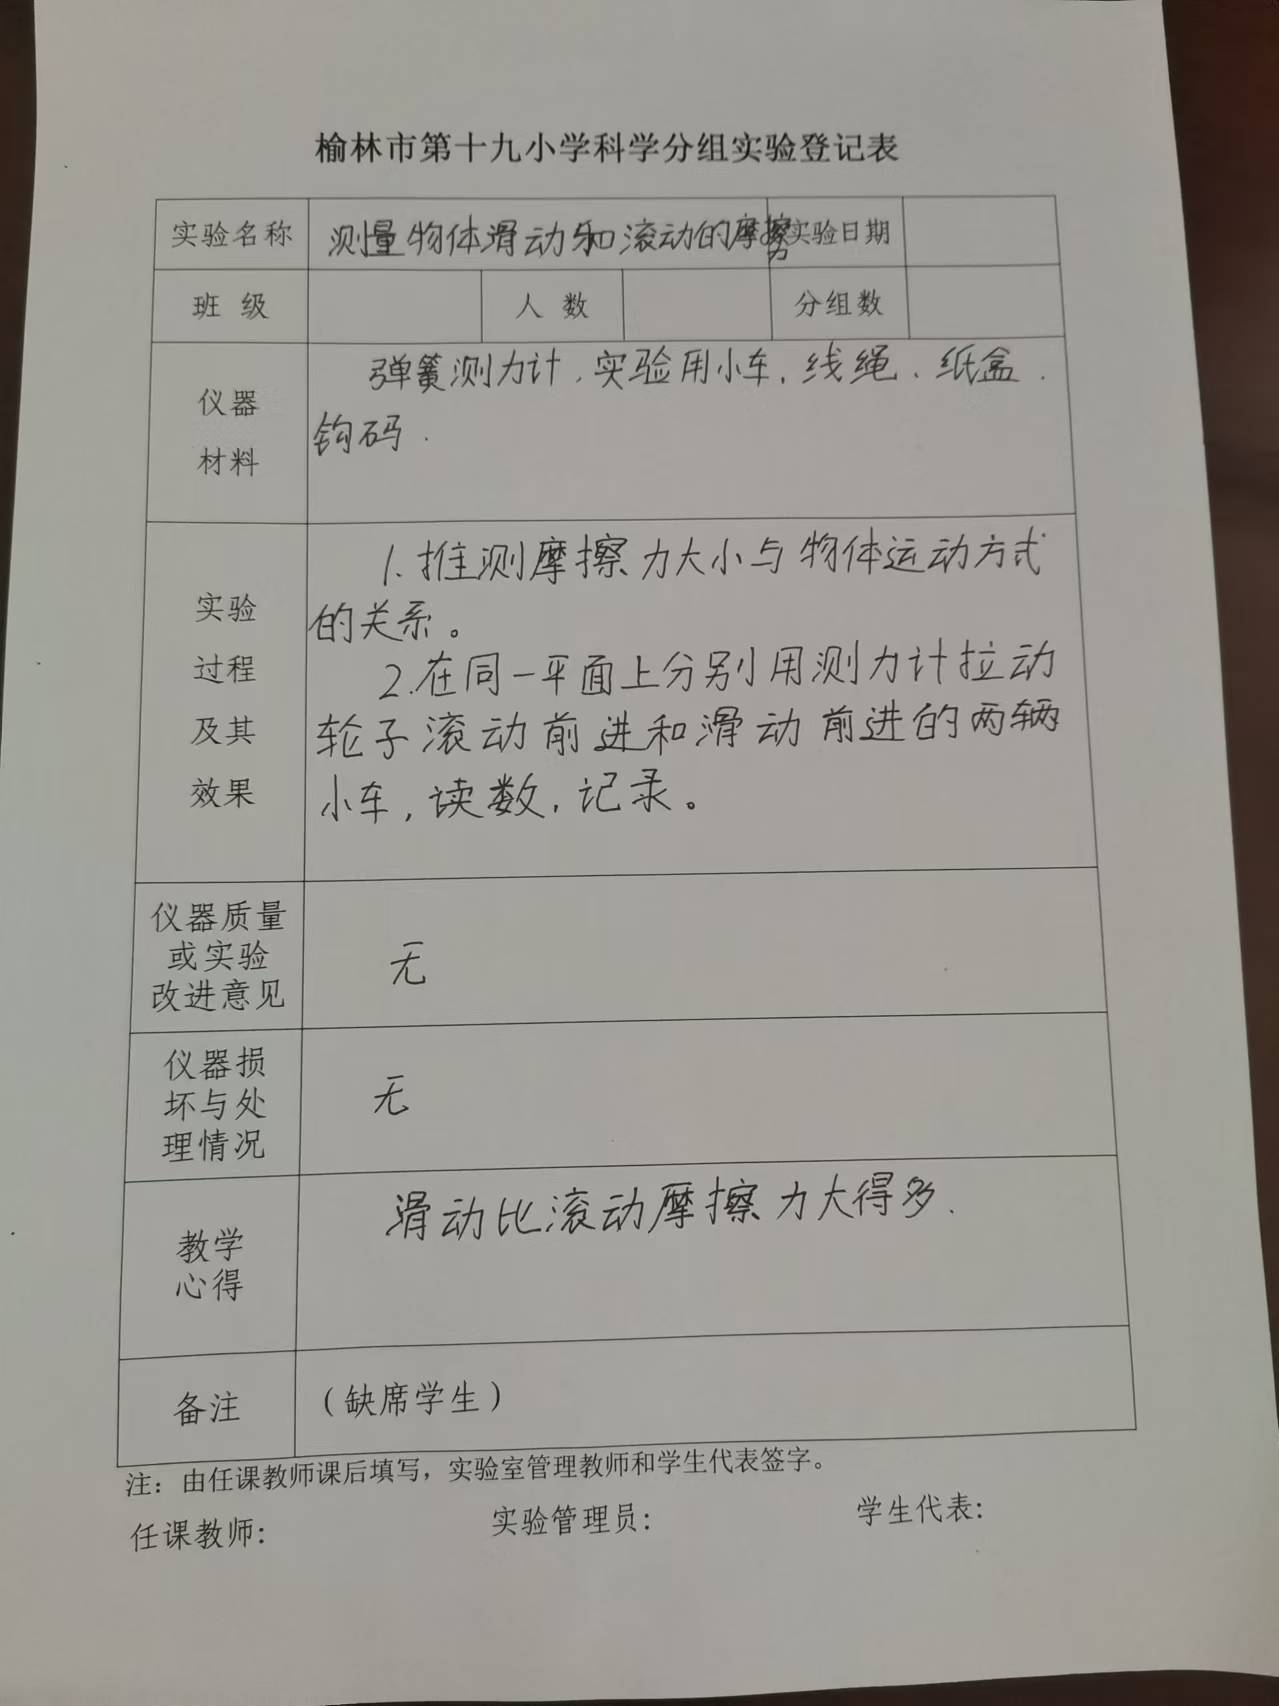 榆林市第十九小学科学分组实验登记表
实验名称 测量物体滑动和滚动的摩擦力 实验日期
班 级 人 数 分组数
仪器
材料
弹簧测力计、实验用小车、线绳、纸盒、
钩码.
实验
过程
及其
效果
1.推测摩擦力大小与物体运动方式
的关系。
2.在同一平面上分别用测力计拉动
轮子滚动前进和滑动前进的两辆
小车,读数,记录。
仪器质量
或实验
改进意见
无
仪器损
坏与处
理情况
无
教学
心得
滑动比滚动摩擦力大得多.
备注 (缺席学生)
注:由任课教师课后填写,实验室管理教师和学生代表签字。
任课教师: 实验管理员: 学生代表: